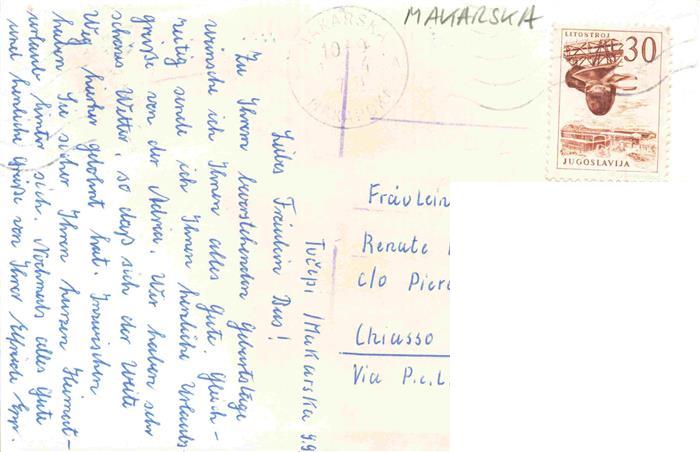 MAKARSKA
LITOSTROJ
30
JUGOSLAVIJA
MAKARSKA
10
Tučepi /Makarska 9.9
Liebes Fräulein
Zu Ihrem bevorstehenden Geburtstage
wünsche ich Ihnen alles Gute. Gleich-
zeitig sende ich Ihnen herzliche Urlaubs
grüße von der Adria. Wir haben sehr
schönes Wetter, so daß sich der weite
Weg hierher gelohnt hat. Inzwischen
haben Sie sicher Ihren kurzen Heimat-
urlaub hinter sich. Nochmals alles Gute
und herzliche Grüße von Ihrer Elfriede
Fräulein
Renate
c/o
Chiasso
Via P.c.L